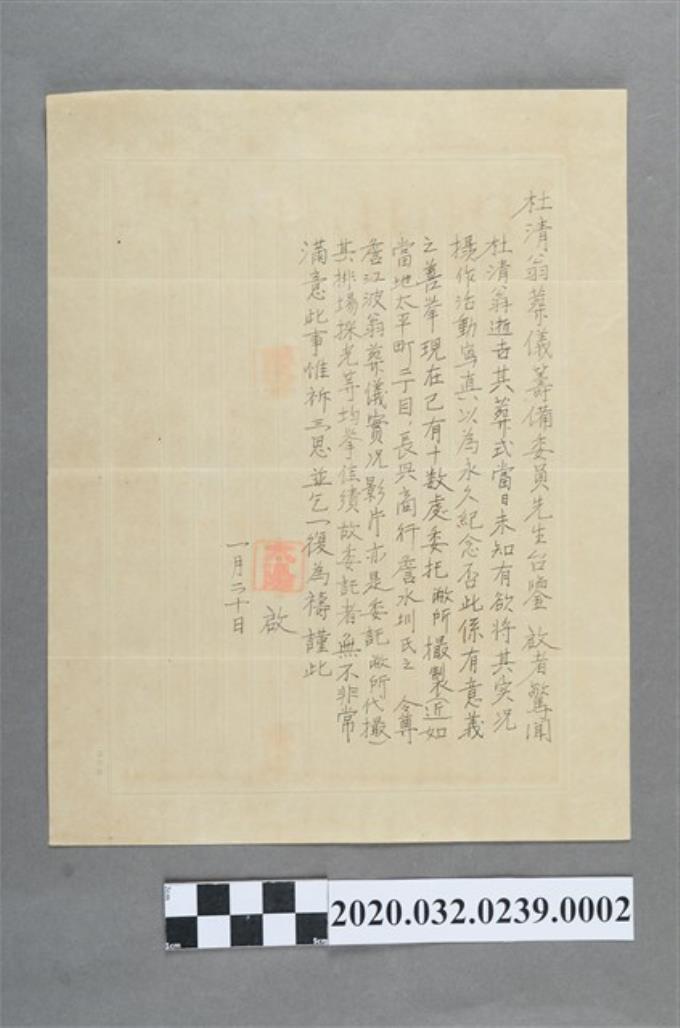 杜清翁葬儀籌備委員先生台鑒 啟者驚聞
杜清翁逝去其葬式當日未知有欲將其实况
撮作活動寫真以為永久紀念否此係有意義
之善举現在已有十数處委托敝所撮製(近如
當地太平町二丁目,長興商行詹水圳氏之 令尊
詹江波翁葬儀實况影片亦是委託敝所代撮)
其排場採光等均举佳績故委託者無不非常
滿意此事惟祈三思並乞一復為禱謹此
啟
一月二十日
2020.032.0239.0002
1cm
5cm